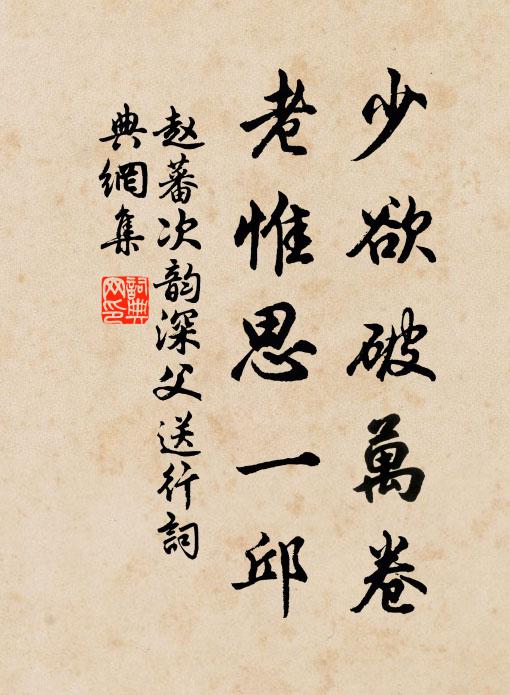 少欲破萬卷
老惟思一邱
赵蕃次韵深父送行詞
典網集
詞典
网印